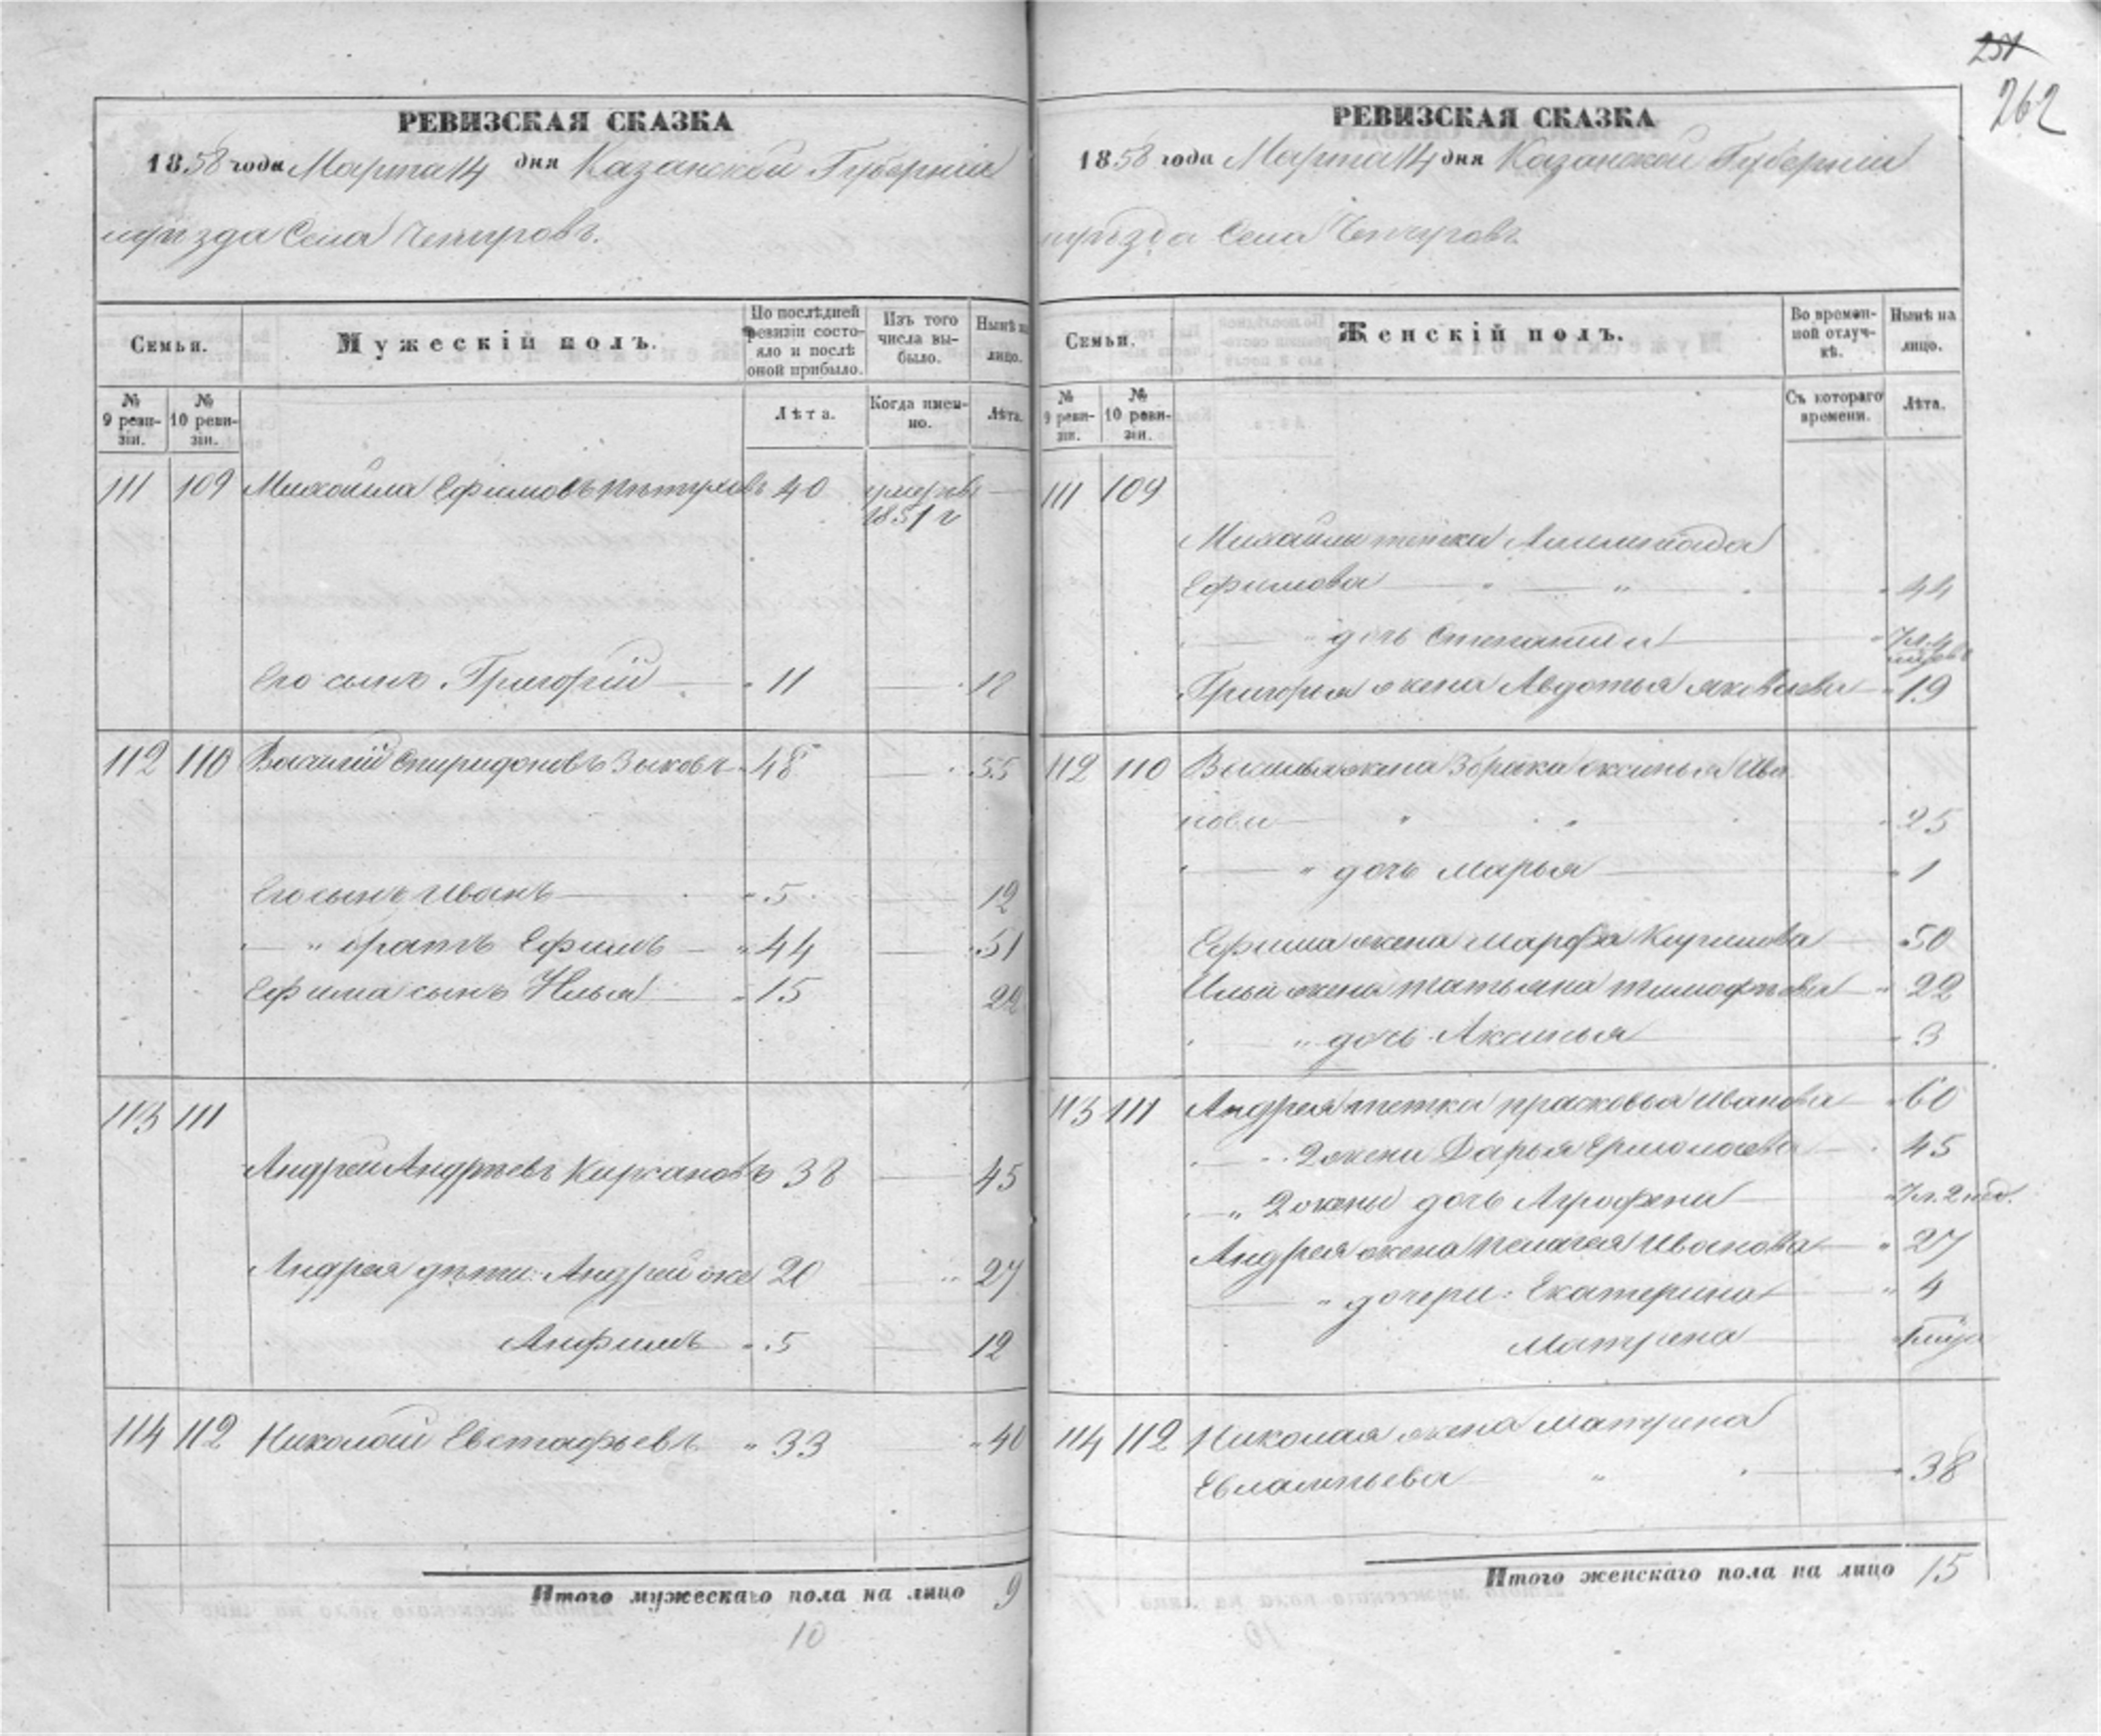 251
262
РЕВИЗСКАЯ СКАЗКА
1858 года Марта 14 дня Казанской Губерніи
уѣзда Села
Семьи.
Мужескій полъ.
По послѣдней ревизіи состояло и послѣ оной прибыло.
Изъ того числа выбыло.
Нынѣ на лицо.
№ 9 ревизіи.
№ 10 ревизіи.
Лѣта.
Когда именно.
Лѣта.
111 109 Михайла Ефимовъ Пѣтуховъ 40 умеръ въ 1851 г
Его сынъ Григорій 11 18
112 110 Василій Спиридоновъ Зыковъ 48 55
Его сынъ Иванъ 5 12
" братъ Ефимъ 44 51
Ефима сынъ Илья 15 22
113 111
Андрей Андрѣевъ Кирсановъ 38 45
Андрея дѣти: Андрей же 20 27
Анфимъ 5 12
114 112 Николай Евстафьевъ " 33 " 40
Итого мужескаго пола на лицо 9
10
РЕВИЗСКАЯ СКАЗКА
1858 года Марта 14 дня Казанской Губерніи
уѣзда Села
Семьи.
Женскій полъ.
Во временной отлучкѣ.
Нынѣ на лицо.
№ 9 ревизіи.
№ 10 ревизіи.
Съ котораго времени.
Лѣта.
111 109
Михайлы тётка
Ефимова 44
" дочь Степанида
Григорья жена Авдотья Яковлева 19
112 110 Василья жена 2 брака Оксинья Ива
нова 25
" дочь Марья 1
Ефима жена Марфа Кирилова 50
Ильи жена Татьяна Тимофѣева 22
" дочь Аксинья 3
113 111 Андрея тетка Прасковья Иванова 60
2 жена Дарья Ермолаева 45
" 2 жены дочь Агрофена
Андрея жена Пелагея Иванова 27
" дочери: Екатерина 4
Матрена
114 112 Николая жена Матрена
Евлампьева 38
Итого женскаго пола на лицо 15